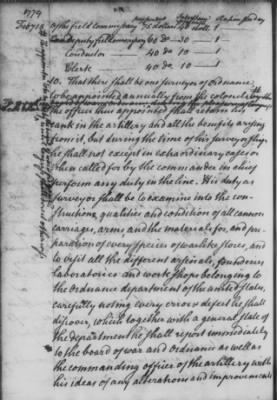 1779
Feby 18
of the field commissary 75 dollars 40 dolls. 1
deputy field commissary 60 do 30 1
Conductor 40 do 10 1
Clerk 40 do 10 1
10. That there shall be one surveyor of Ordnance
to be appointed annually from the colonels &
the officer thus appointed shall retain his
rank in the artillery and all the benefits arising
from it, but during the time of his surveyorship
he shall not except in extraordinary cases or
when called for by the commander in chief
perform any duty in the line. His duty as
surveyor shall be to examine into the con-
struction, qualities and condition of all cannon
carriages, arms and the materials for, and pre-
paration of every species of warlike stores, and
to visit all the different arsenals, founderies
laboratories and workshops belonging to
the Ordnance department of the united states,
carefully noting every error & defect he shall
discover, which together with a general state of
the department he shall report immediately
to the board of war and Ordnance as well as
the commanding officer of the artillery with
his ideas of any alterations and improvements